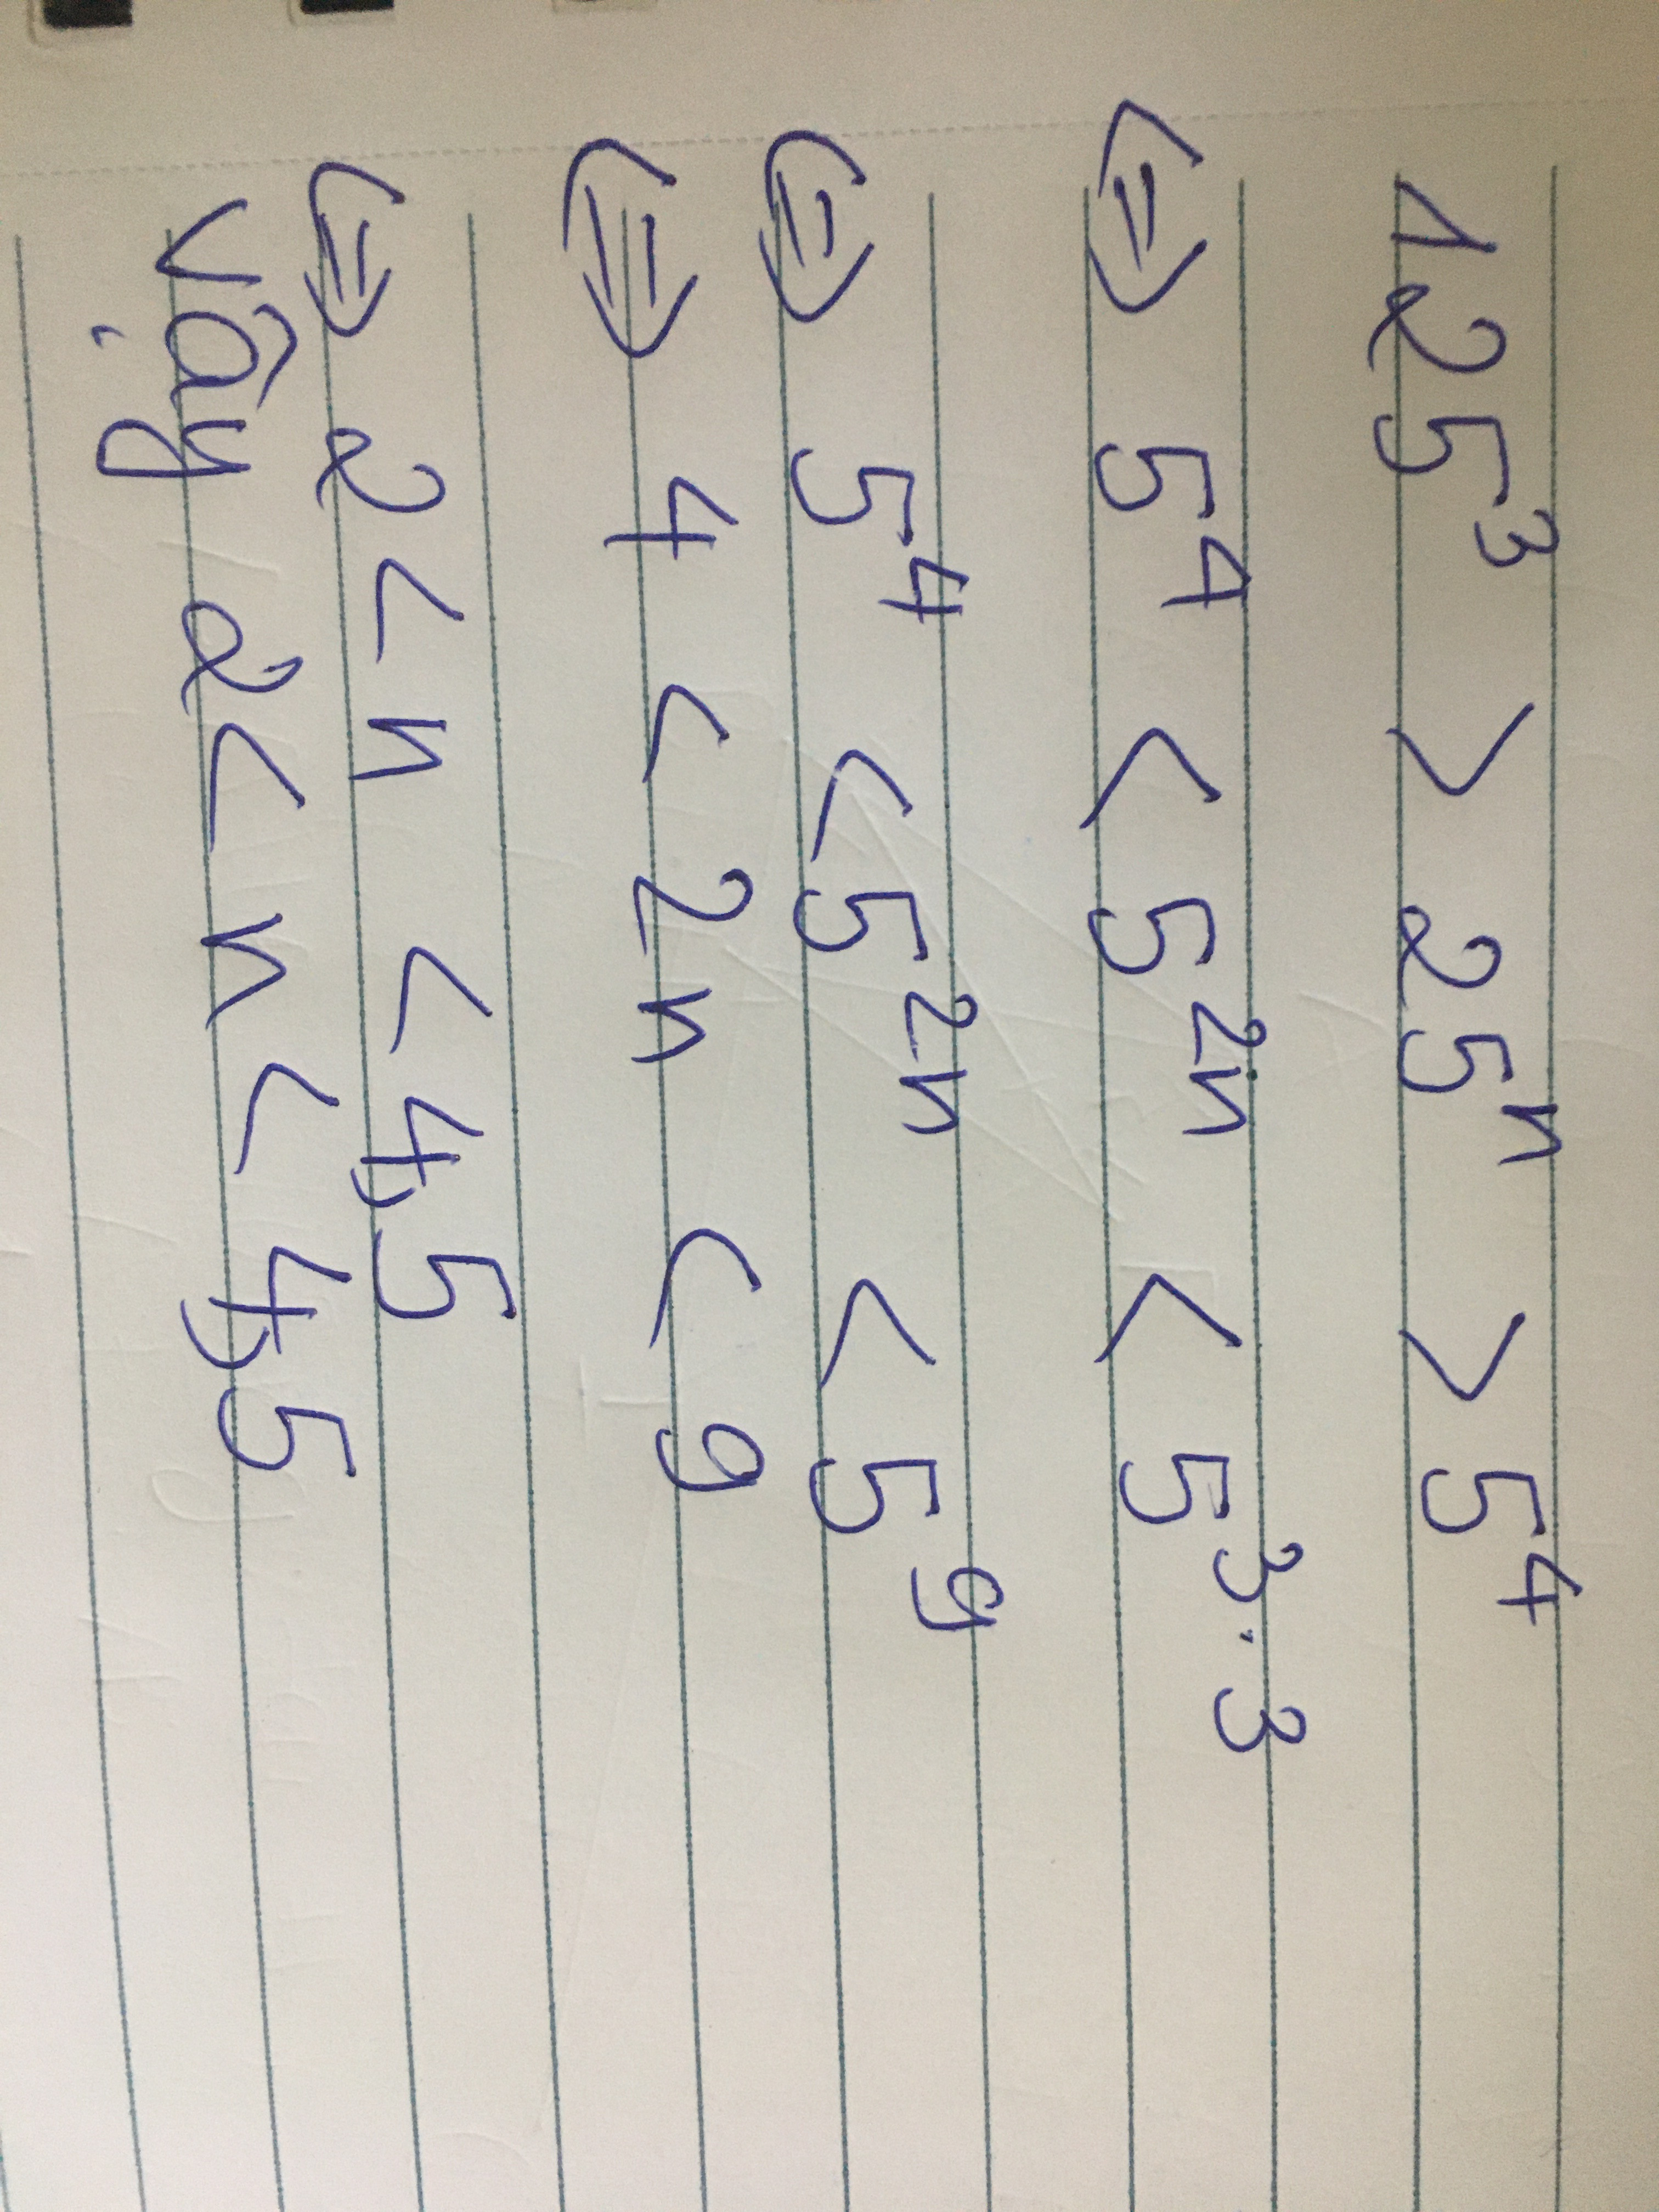 125³ > 25ⁿ > 5⁴
⇔ 5⁴ < 5²ⁿ < 5³·³
⇔ 5⁴ < 5²ⁿ < 5⁹
⇔ 4 < 2n < 9
⇔ 2 < n < 4,5
Vậy 2 < n < 4,5